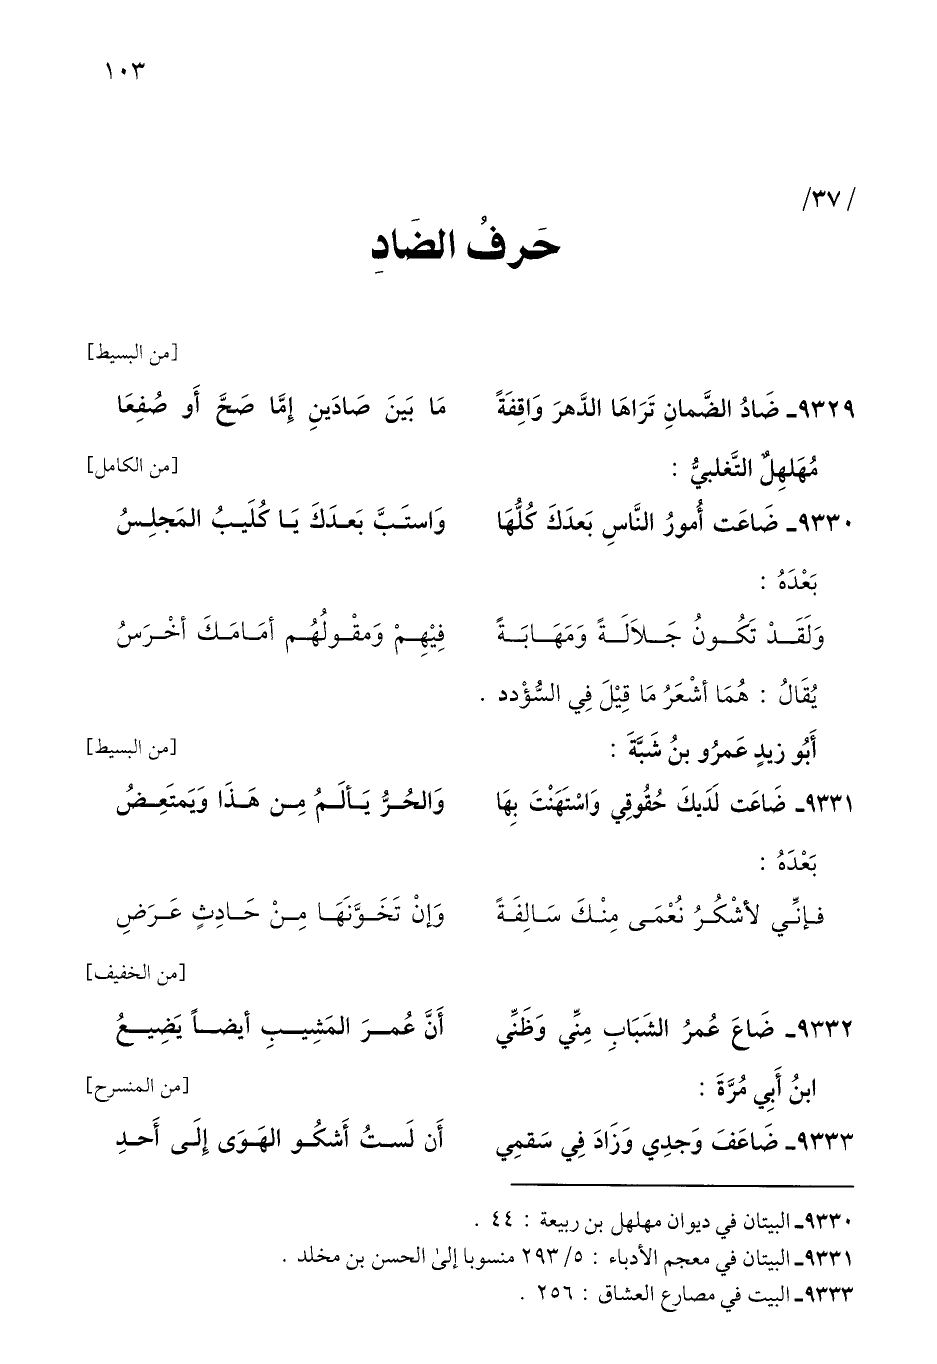 ١٠٣
/٣٧/
حَرفُ الضَادِ
[من البسيط]
٩٣٢٩ـ ضَادُ الضَّمانِ تَرَاهَا الدَّهرَ وَاقِفَةً مَا بَينَ صَادَينِ إمَّا صَحَّ أَو صُفِعَا
مُهَلهِلٌ التَّغلبيُّ : [من الكامل]
٩٣٣٠ـ ضَاعَت أُمورُ النَّاسِ بَعدَكَ كُلُّهَا وَاستَبَّ بَعدَكَ يَا كُلَيبُ المَجلِسُ
بَعْدَهُ :
وَلَقَدْ تَكُونُ جَلاَلَةً وَمَهَابَةً فِيْهِمْ وَمقْولُهُم أمَامَكَ أخْرَسُ
يُقَالُ : هُمَا أشْعَرُ مَا قِيْلَ فِي السُّؤْدد .
أَبُو زيدٍ عَمرُو بنُ شَبَّةَ : [من البسيط]
٩٣٣١ـ ضَاعَت لَدَيكَ حُقُوقِي وَاسْتَهَنْتَ بِهَا وَالحُرُّ يَألَمُ مِن هَذَا وَيَمتَعِضُ
بَعْدَهُ :
فإنِّي لأشْكُرُ نُعْمَى مِنْكَ سَالِفَةً وَإنْ تَخَوَّنَهَا مِنْ حَادِثٍ عَرَضِ
[من الخفيف]
٩٣٣٢ـ ضَاعَ عُمرُ الشَبَابِ مِنِّي وَظَنِّي أَنَّ عُمرَ المَشِيبِ أيضاً يَضِيعُ
ابنُ أَبِي مُرَّةَ : [من المنسرح]
٩٣٣٣ـ ضَاعَفَ وَجدِي وَزَادَ فِي سَقمِي أَن لَستُ أَشكُو الهَوَى إِلَى أَحدِ
٩٣٣٠ـ البيتان في ديوان مهلهل بن ربيعة : ٤٤ .
٩٣٣١ـ البيتان في معجم الأدباء : ٥/ ٢٩٣ منسوبا إلىٰ الحسن بن مخلد .
٩٣٣٣ـ البيت في مصارع العشاق : ٢٥٦ .